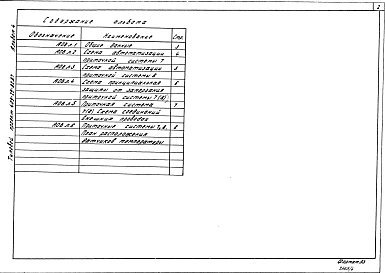 2
Содержание альбома
Альбом 4
Обозначение Наименование Стр.
АОВ.л.1 Общие данные 3
АОВ.л.2 Схема автоматизации 4
приточной системы 7
АОВ.л.3 Схема автоматизации 5
приточной системы 8
АОВ.л.4 Схема принципиальная 6
защиты от замерзания
приточной системы 7(8)
АОВ.л.5 Приточная система 7
7(8) Схема соединений
внешних проводок
АОВ.л.6 Приточные системы 7, 8. 8
План расположения
датчиков температуры
Типовой проект
Формат А3